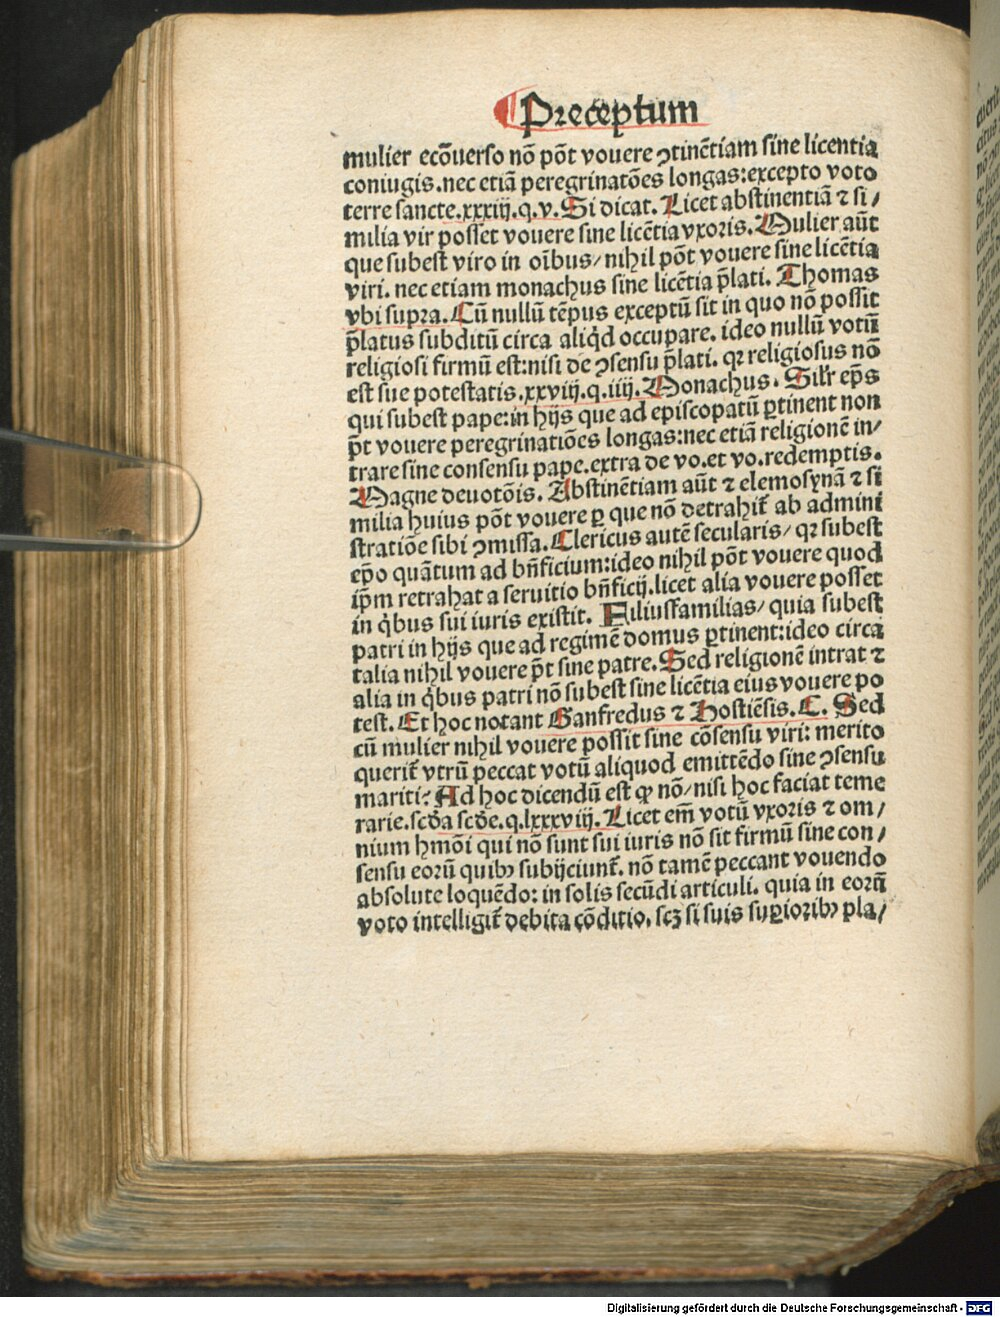 Preceptum
mulier ecōuerso nō pōt vouere ꝯtinētiam sine licentia
coniugis.nec etiā peregrinatōes longas:excepto voto
terre sancte.xxxiij.q.v.Si dicat. Licet abstinentiā ⁊ si/
milia vir posset vouere sine licētia vxoris. Mulier aūt
que subest viro in oībus/ nihil pōt vouere sine licētia
viri. nec etiam monachus sine licētia p̄lati. Thomas
vbi supra. Cū nullū tēpus exceptū sit in quo nō possit
p̄latus subditū circa aliqd̓ occupare. ideo nullū votū
religiosi firmū est:nisi de ꝯsensu p̄lati. qꝛ religiosus nō
est sue potestatis.xxviij.q.iiij. Monachus. Silr̄ ep̄s
qui subest pape:in hijs que ad episcopatū ꝑtinent non
p̄t vouere peregrinatiōes longas:nec etiā religionē in/
trare sine consensu pape.extra de vo.et vo.redemptis.
Magne deuotōis. Abstinētiam aūt ⁊ elemosynā ⁊ si
milia huius pōt vouere ꝑ que nō detrahit̄ ab admini
stratiōe sibi ꝯmissa. Clericus autē secularis/ qꝛ subest
ep̄o quātum ad bn̄ficium:ideo nihil pōt vouere quod
ip̄m retrahat a seruitio bn̄ficij.licet alia vouere posset
in qͥbus sui iuris existit. Filiusfamilias/ quia subest
patri in hijs que ad regimē domus ꝑtinent:ideo circa
talia nihil vouere p̄t sine patre. Sed religionē intrat ⁊
alia in qͥbus patri nō subest sine licētia eius vouere po
test. Et hoc notant Ganfredus ⁊ Hostiēsis. C. Sed
cū mulier nihil vouere possit sine cōsensu viri: merito
querit̄ vtrū peccat votū aliquod emittēdo sine ꝯsensu
mariti? Ad hoc dicendū est ꝙ nō/ nisi hoc faciat teme
rarie.scd̄a scd̄e.q.lxxxviij. Licet em̄ votū vxoris ⁊ om/
nium hmōi qui nō sunt sui iuris nō sit firmū sine con/
sensu eorū quibꝰ subijciunt̄. nō tamē peccant vouendo
absolute loquēdo: in solis secūdi articuli. quia in eorū
voto intelligit̄ debita cōditio, scꝫ si suis suꝑioribꝰ pla/
Digitalisierung gefördert durch die Deutsche Forschungsgemeinschaft - DFG